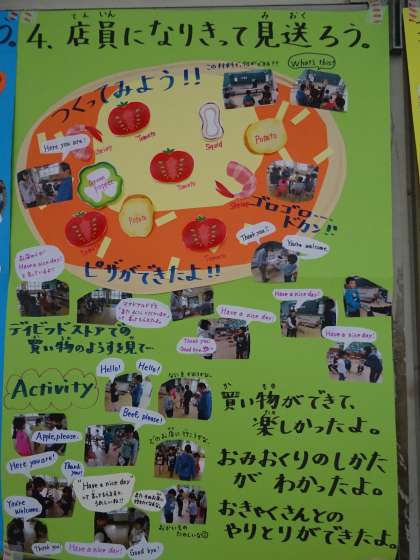 てんいん
みおく
4、店員になりきって見送ろう。
つくってみよう!!
What's this?
Here you are!
Tomato
Squid
Potato
Tomato
Tomato
Green pepper
Shrimp
Potato
Tomato
Tomato
ゴロゴロ
ドカン!!
Thank you!!
You're welcome.
ピザができたよ!!
Have a nice day!
Have a nice day!
Have a nice day!
Have a nice day!
Thank you.
デイビッドストアでの
買い物のようすを見て
Activity
Hello!
Hello!
Beef, please!
Apple, please.
Here you are!
Thank you!
You're welcome.
"Have a nice day"
Thank you!
Have a nice day!
Good bye!
どのお店に行こうかな。
おかいもの
たのしいな
か もの
買い物ができて、
たの
楽しかったよ。
おみおくりのしかた
がわかったよ。
おきゃくさんとの
やりとりができたよ。